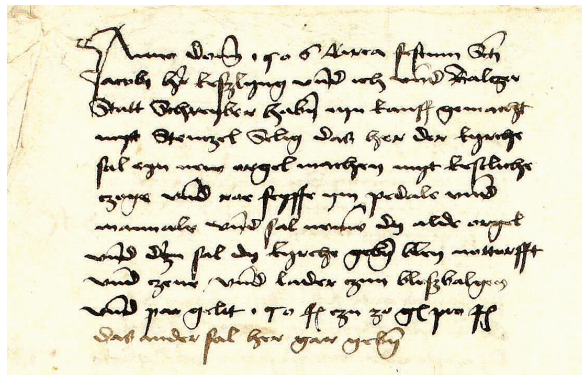 Anno dom̄ 1506 Circa festum Scti
Jacobi h̄r kess und ich und Balczer
Statt Schreyber habñ eyn kauff gemacht
myt Stenczel Selig das her der kyrche
sal eyn new orgel machen myt kestliche
czoge und pfeyffe ym pedale und
manuale und sal neme dy alde orgel
und sal dy kyrche gebñ blen notturfft
und czene und lader czum bloszbalgen
und par gelt 50 fl czu 30 gl pro fl
das ander sal her gar gebñ